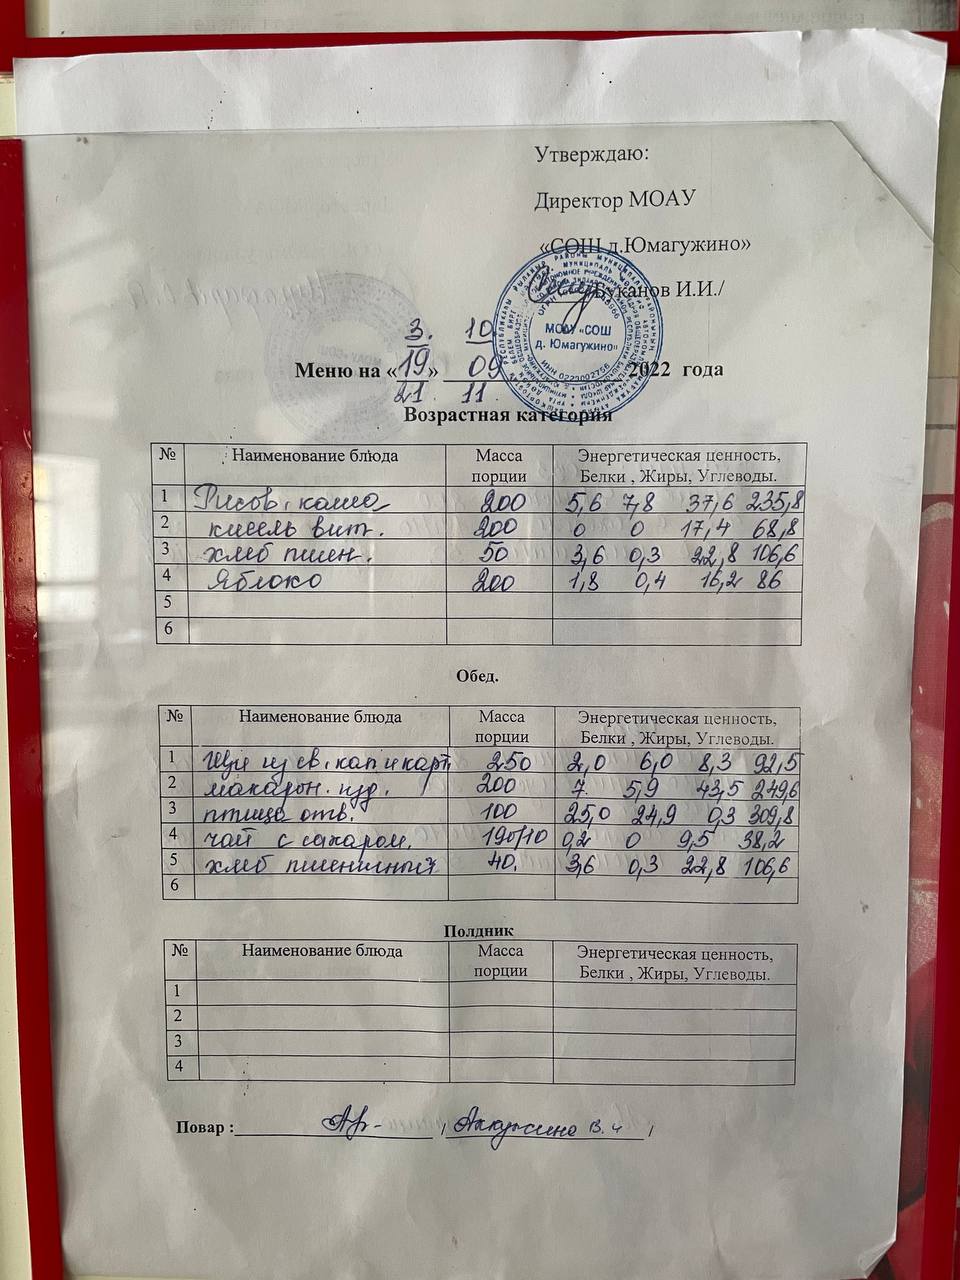 Утверждаю:
Директор МОАУ
«СОШ д.Юмагужино»
Буканов И.И./
МОАУ «СОШ
д. Юмагужино»
ИНН 0223002756
3. 10
Меню на «19» 09 2022 года
21 11
Возрастная категория
№ Наименование блюда Масса порции Энергетическая ценность, Белки , Жиры, Углеводы.
1 Рисов. каша 200 5,6 7,8 37,6 235,8
2 кисель вит. 200 0 0 17,4 68,8
3 хлеб пшен. 50 3,6 0,3 22,8 106,6
4 Яблоко 200 1,8 0,4 16,2 86
5
6
Обед.
№ Наименование блюда Масса порции Энергетическая ценность, Белки , Жиры, Углеводы.
1 Щи из св. кап и карт 250 2,0 6,0 8,3 92,5
2 макарон. изд. 200 7. 5,9 43,5 249,6
3 птица отв. 100 25,0 24,9 0,3 309,8
4 чай с сахаром. 190/10 0,2 0 9,5 38,2
5 хлеб пшеничный 40. 3,6 0,3 22,8 106,6
6
Полдник
№ Наименование блюда Масса порции Энергетическая ценность, Белки , Жиры, Углеводы.
1
2
3
4
Повар : / /